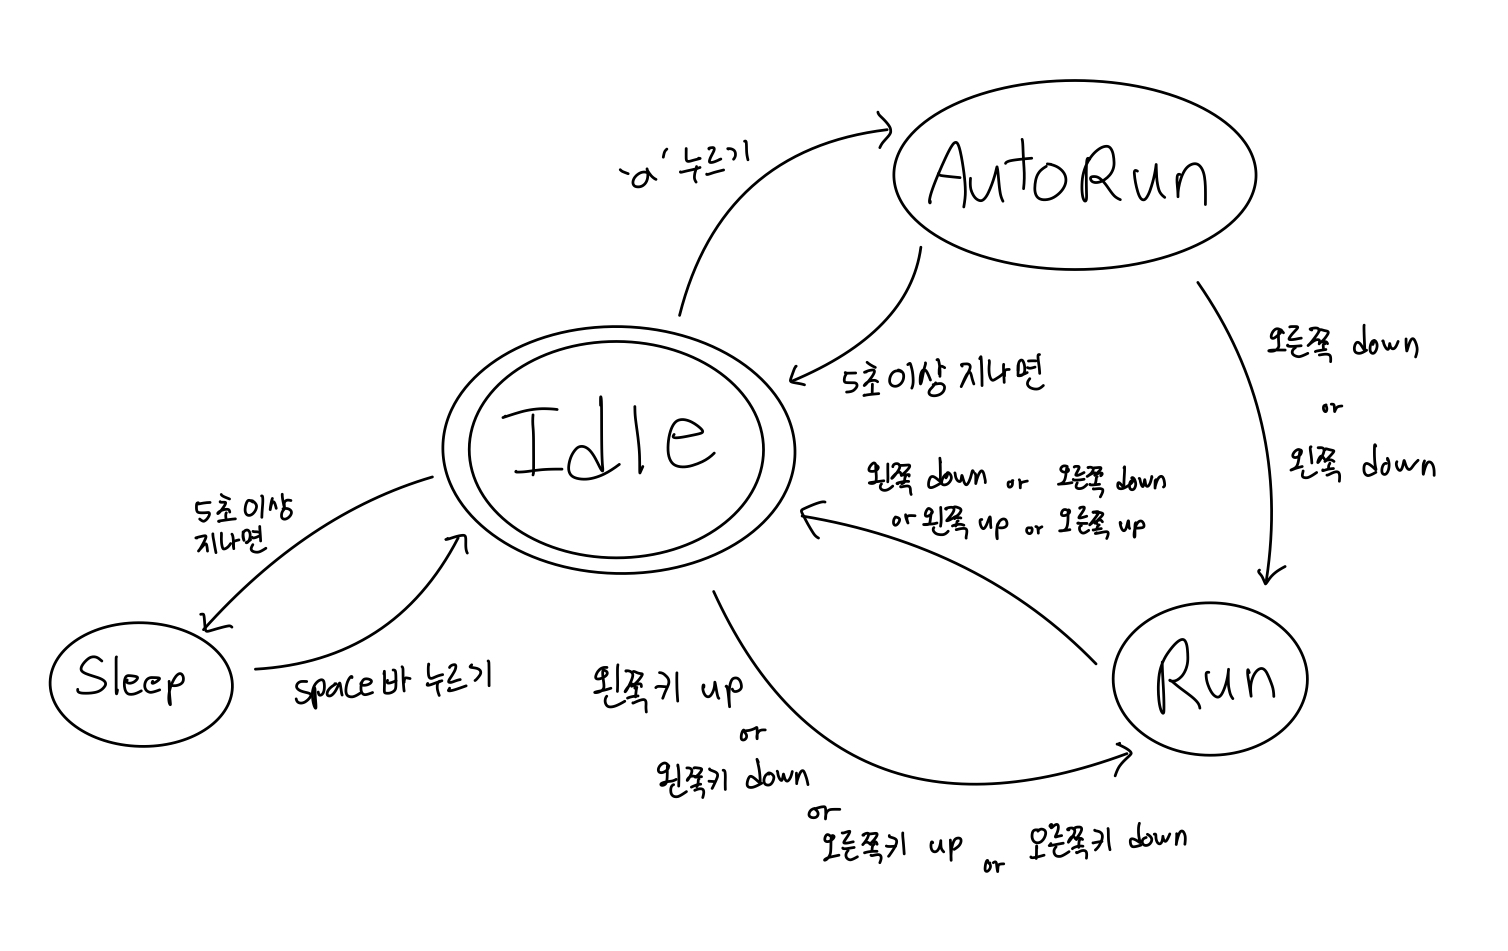 'a' 누르기
AutoRun
5초이상 지나면
오른쪽 down
or
왼쪽 down
Idle
왼쪽 down or 오른쪽 down
or 왼쪽 up or 오른쪽 up
5초이상
지나면
Sleep
space바 누르기
Run
왼쪽키 up
or
왼쪽키 down
or
오른쪽키 up or 오른쪽키 down